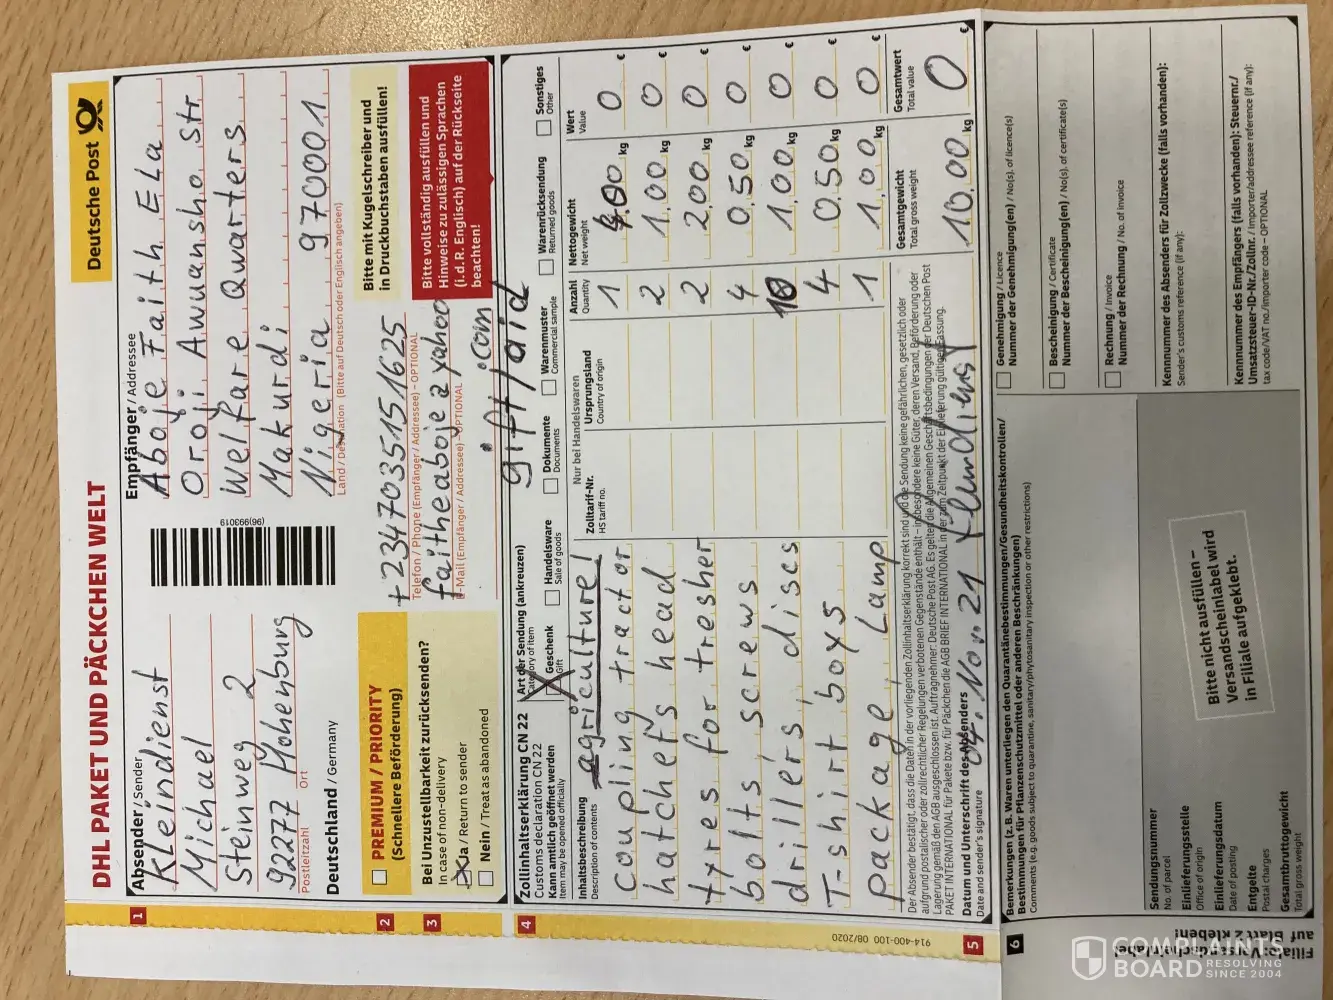 DHL PAKET UND PÄCKCHEN WELT
Deutsche Post
1
Absender / Sender
Kleindienst
Michael
Steinweg 2
92277 Hohenburg
Postleitzahl Ort
Deutschland / Germany
(96)993019
Empfänger / Addressee
Aboje Faith Ela
Oroji Awuansho Str.
Welfare Quarters
Makurdi
Nigeria 970001
Land / Destination (Bitte auf Deutsch oder Englisch angeben)
2
PREMIUM / PRIORITY
(Schnellere Beförderung)
+2347035151625
Telefon / Phone (Empfänger / Addressee) – OPTIONAL
Bitte mit Kugelschreiber und
in Druckbuchstaben ausfüllen!
3
Bei Unzustellbarkeit zurücksenden?
In case of non-delivery
Ja / Return to sender
Nein / Treat as abandoned
faitheaboje a yahoo
.com
E-Mail (Empfänger / Addressee) – OPTIONAL
Bitte vollständig ausfüllen und
Hinweise zu zulässigen Sprachen
(i.d.R. Englisch) auf der Rückseite
beachten!
4
Zollinhaltserklärung CN 22
Customs declaration CN 22
Kann amtlich geöffnet werden
Item may be opened officially
Art der Sendung (ankreuzen)
Category of item
gift/aid
Geschenk
Gift
Handelsware
Sale of goods
Dokumente
Documents
Warenmuster
Commercial sample
Warenrücksendung
Returned goods
Sonstiges
Other
Inhaltsbeschreibung
Description of contents
agriculture!
Nur bei Handelswaren
Zolltarif-Nr.
HS tariff no.
Ursprungsland
Country of origin
Anzahl
Quantity
Nettogewicht
Net weight
Wert
Value
coupling tractor 1 4.00 kg 0 €
hatchefs head 2 1.00 kg 0 €
tyres for tresher 2 2.00 kg 0 €
bolts, screws 4 0.50 kg 0 €
drillers, dises 10 1.00 kg 0 €
T-shirt boys 4 0.50 kg 0 €
package, Lamp 1 1.00 kg 0 €
Der Absender bestätigt, dass die Daten in der vorliegenden Zollinhaltserklärung korrekt sind und die Sendung keine gefährlichen, gesetzlich oder
aufgrund postalischer oder zollrechtlicher Regelungen verbotenen Gegenstände enthält – insbesondere keine Güter, deren Versand, Beförderung oder
Lagerung gemäß den AGB ausgeschlossen ist. Auftragnehmer: Deutsche Post AG. Es gelten die Allgemeinen Geschäftsbedingungen der Deutschen Post
PAKET INTERNATIONAL für Pakete bzw. für Päckchen die AGB BRIEF INTERNATIONAL in der zum Zeitpunkt der Einlieferung gültigen Fassung.
Gesamtgewicht
Total gross weight
10.00 kg
Gesamtwert
Total value
0 €
5
Datum und Unterschrift des Absenders
Date and sender's signature
04. Nov. 21
914-400-100 08/2020
6
Bemerkungen (z. B. Waren unterliegen den Quarantänebestimmungen/Gesundheitskontrollen/
Bestimmungen für Pflanzenschutzmittel oder anderen Beschränkungen)
Comments (e.g. goods subject to quarantine, sanitary/phytosanitary inspection or other restrictions)
Genehmigung / Licence
Nummer der Genehmigung(en) / No(s). of licence(s)
Bescheinigung / Certificate
Nummer der Bescheinigung(en) / No(s). of certificate(s)
Rechnung / Invoice
Nummer der Rechnung / No. of Invoice
Kennnummer des Absenders für Zollzwecke (falls vorhanden):
Sender's customs reference (if any):
Kennnummer des Empfängers (falls vorhanden): Steuernr./
Umsatzsteuer-ID-Nr./Zollnr. / Importer/addressee reference (if any):
tax code/VAT no./importer code – OPTIONAL
Sendungsnummer
No. of parcel
Einlieferungsstelle
Office of origin
Einlieferungsdatum
Date of posting
Entgelte
Postal charges
Gesamtbruttogewicht
Total gross weight
Bitte nicht ausfüllen –
Versandscheinlabel wird
in Filiale aufgeklebt.
Filiale: Versandscheinlabel
auf Blatt 2 kleben!
COMPLAINTS
BOARD RESOLVING
SINCE 2004